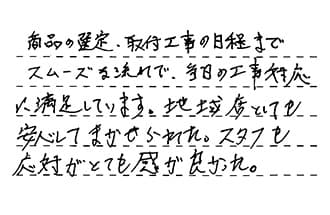 商品の選定、取付工事の日程まで
スムーズな流れで、当日の工事対応
に満足しています。地域店としても
安心してまかせられた。スタフも
応対がとても感が良かった。